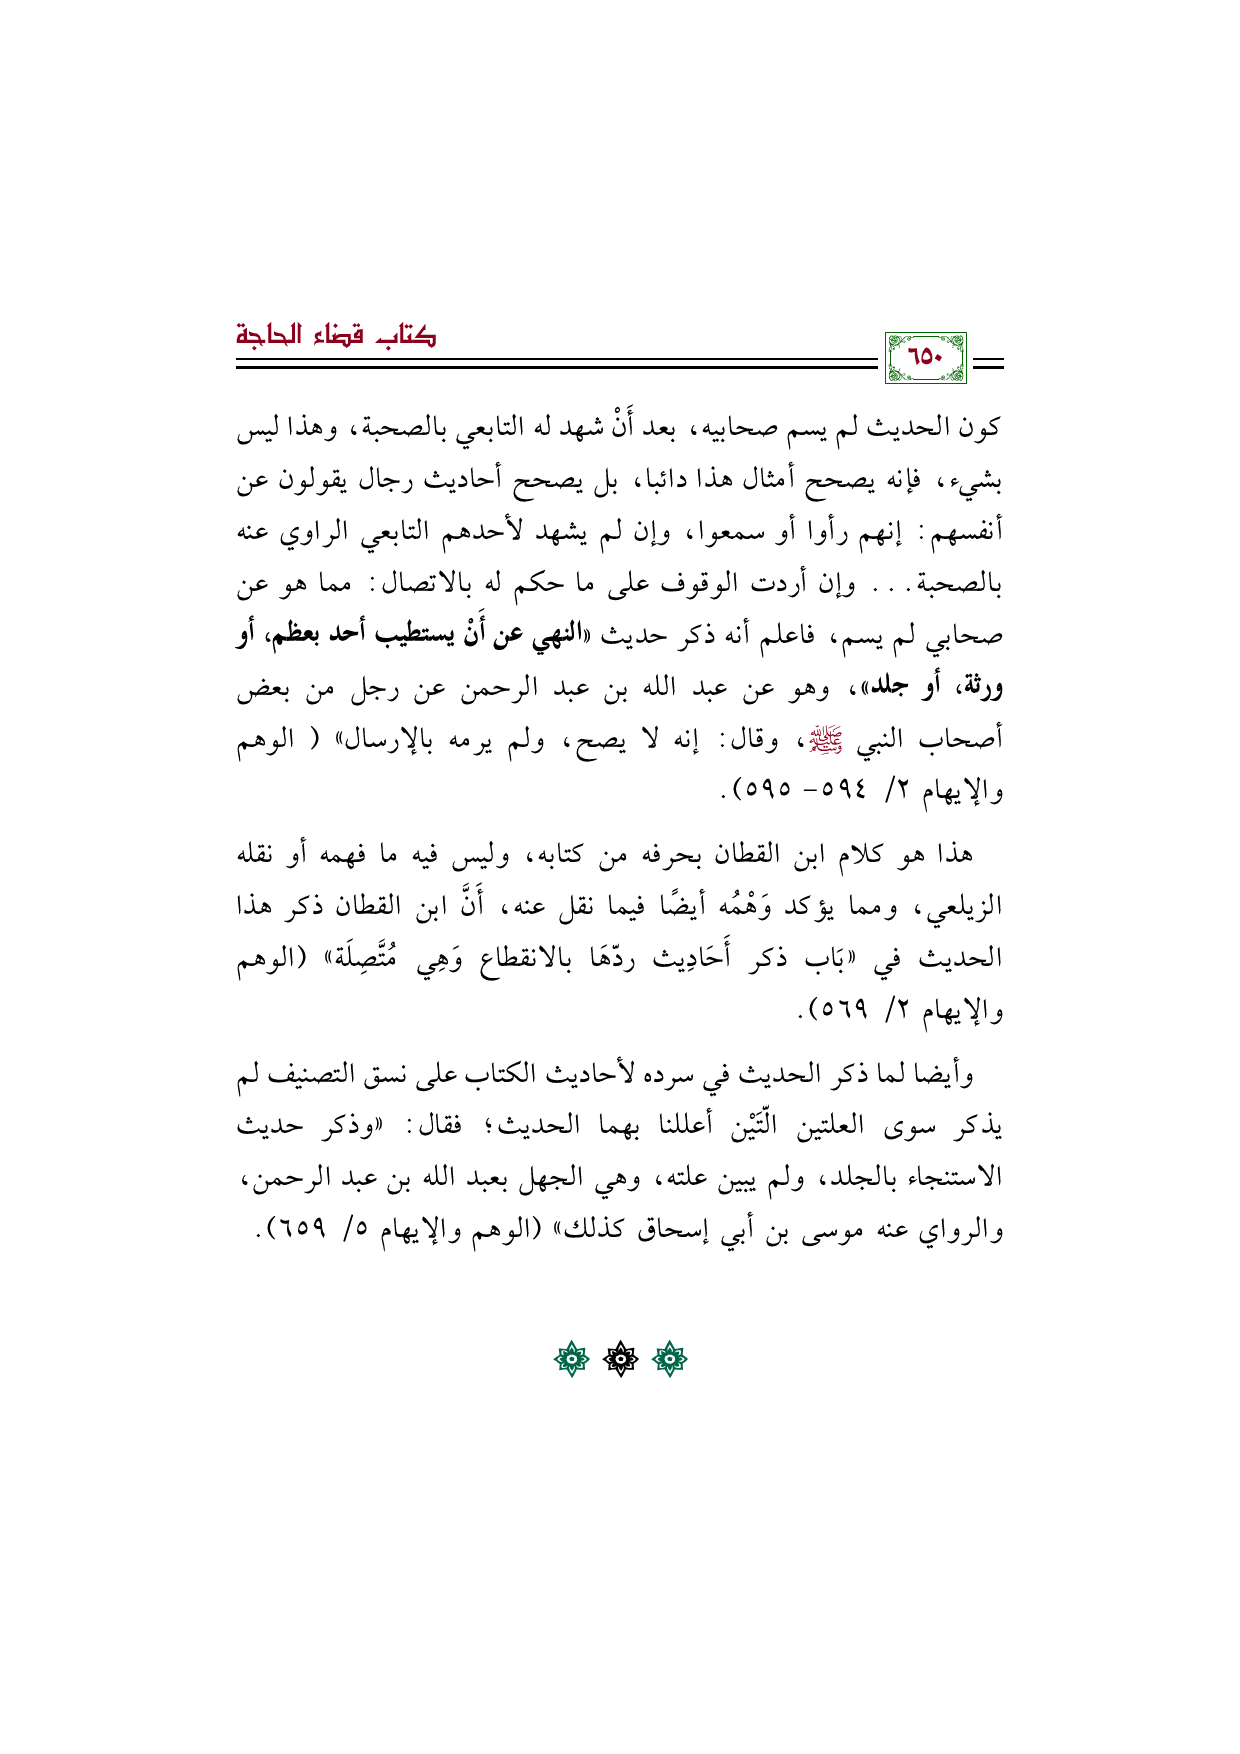 كتاب قضاء الحاجة
٦٥٠
كون الحديث لم يسم صحابيه، بعد أَنْ شهد له التابعي بالصحبة، وهذا ليس
بشيء، فإنه يصحح أمثال هذا دائبا، بل يصحح أحاديث رجال يقولون عن
أنفسهم: إنهم رأوا أو سمعوا، وإن لم يشهد لأحدهم التابعي الراوي عنه
بالصحبة... وإن أردت الوقوف على ما حكم له بالاتصال: مما هو عن
صحابي لم يسم، فاعلم أنه ذكر حديث «النهي عن أَنْ يستطيب أحد بعظم، أو
ورثة، أو جلد»، وهو عن عبد الله بن عبد الرحمن عن رجل من بعض
أصحاب النبي ﷺ، وقال: إنه لا يصح، ولم يرمه بالإرسال» ( الوهم
والإيهام ٢/ ٥٩٤- ٥٩٥).
هذا هو كلام ابن القطان بحرفه من كتابه، وليس فيه ما فهمه أو نقله
الزيلعي، ومما يؤكد وَهْمُه أيضًا فيما نقل عنه، أَنَّ ابن القطان ذكر هذا
الحديث في «بَاب ذكر أَحَادِيث ردّهَا بالانقطاع وَهِي مُتَّصِلَة» (الوهم
والإيهام ٢/ ٥٦٩).
وأيضا لما ذكر الحديث في سرده لأحاديث الكتاب على نسق التصنيف لم
يذكر سوى العلتين الّتَيْن أعللنا بهما الحديث؛ فقال: «وذكر حديث
الاستنجاء بالجلد، ولم يبين علته، وهي الجهل بعبد الله بن عبد الرحمن،
والرواي عنه موسى بن أبي إسحاق كذلك» (الوهم والإيهام ٥/ ٦٥٩).